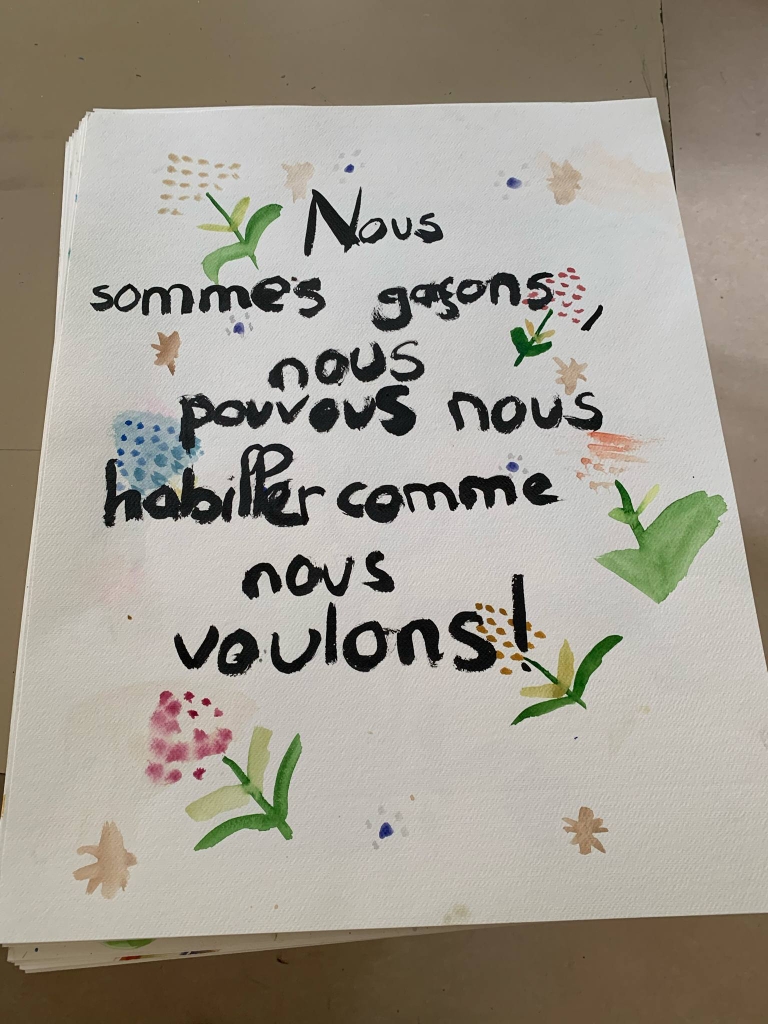 Nous
sommes gaçons,
nous
pouvous nous
habiller comme
nous
voulons!